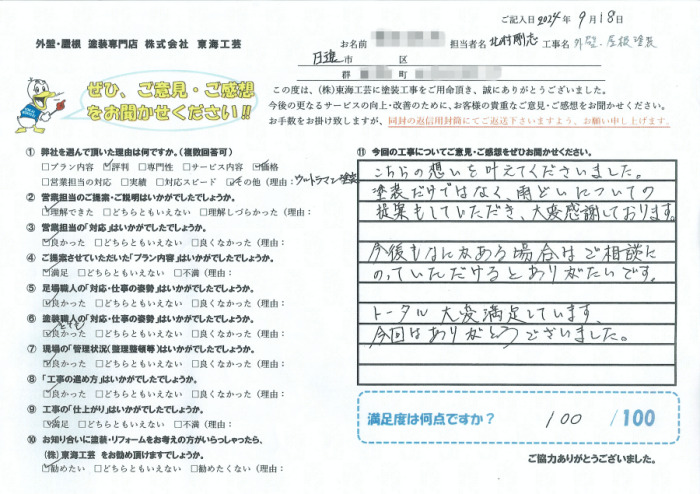 ご記入日 2024 年 9 月 18 日
外壁・屋根 塗装専門店 株式会社 東海工芸
お名前 担当者名 北村剛志 工事名 外壁・屋根塗装
日進 市 区
郡 町
ぜひ、ご意見・ご感想
をお聞かせください!!
この度は、(株)東海工芸に塗装工事をご用命頂き、誠にありがとうございました。
今後の更なるサービスの向上・改善のために、お客様の貴重なご意見・ご感想をお聞かせください。
お手数をお掛け致しますが、同封の返信用封筒にてご返送下さいますよう、お願い申し上げます。
① 弊社を選んで頂いた理由は何ですか。(複数回答可)
□プラン内容 ☑評判 □専門性 □サービス内容 ☑価格
□営業担当の対応 □実績 □対応スピード ☑その他(理由:ウルトラマン塗装
② 営業担当のご提案・ご説明はいかがでしたでしょうか。
☑理解できた □どちらともいえない □理解しづらかった(理由:
③ 営業担当の「対応」はいかがでしたでしょうか。
☑良かった □どちらともいえない □良くなかった(理由:
④ ご提案させていただいた「プラン内容」はいかがでしたでしょうか。
☑満足 □どちらともいえない □不満(理由:
⑤ 足場職人の「対応・仕事の姿勢」はいかがでしたでしょうか。
☑良かった □どちらともいえない □良くなかった(理由:
⑥ 塗装職人の「対応・仕事の姿勢」はいかがでしたでしょうか。
とても
☑良かった □どちらともいえない □良くなかった(理由:
⑦ 現場の「管理状況(整理整頓等)はいかがでしたでしょうか。
☑良かった □どちらともいえない □良くなかった(理由:
⑧ 「工事の進め方」はいかがでしたでしょうか。
☑良かった □どちらともいえない □良くなかった(理由:
⑨ 工事の「仕上がり」はいかがでしたでしょうか。
☑満足 □どちらともいえない □不満(理由:
⑩ お知り合いに塗装・リフォームをお考えの方がいらっしゃったら、
(株)東海工芸 をお勧め頂けますでしょうか。
☑勧めたい □どちらともいえない □勧めたくない(理由:
⑪ 今回の工事についてご意見・ご感想をぜひお聞かせください。
こちらの想いを叶えてくださいました。
塗装だけではなく、雨どいについての
提案もしていただき、大変感謝しております。
今後もなにかある場合はご相談に
のっていただけるとありがたいです。
トータル大変満足しています、
今回はありがとうございました。
満足度は何点ですか? 100 /100
ご協力ありがとうございました。